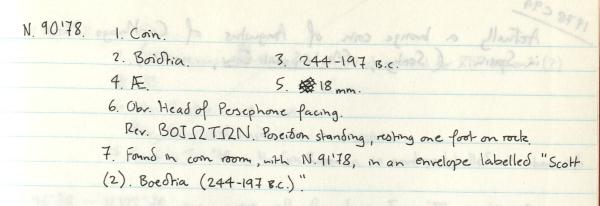 N. 90'78. 1. Coin.
2. Boiotia. 3. 244-197 B.C.
4. Æ. 5. 18 mm.
6. Obv. Head of Persephone facing.
Rev. BOIΩTΩN. Poseidon standing, resting one foot on rock.
7. Found in coin room, with N.91'78, in an envelope labelled "Scott
(2). Boeotia (244-197 B.C.)"